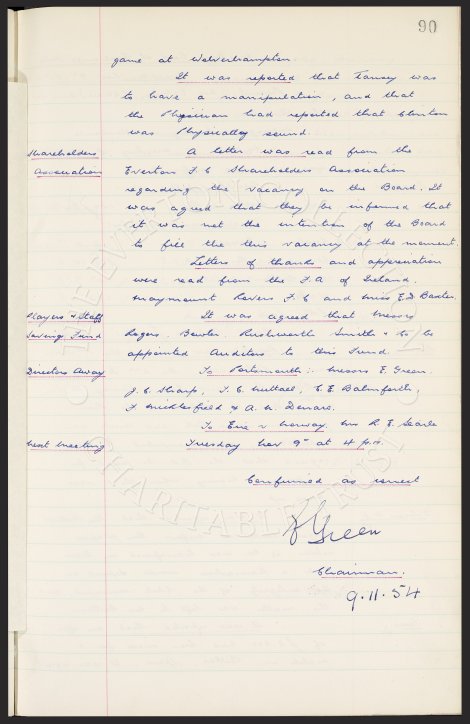 90
game at Wolverhampton
It was reported that Tansey was
to have a manipulation, and that
the Physician had reported that Clinton
was Physically sound.
Shareholders A letter was read from the
Association Everton F.C Shareholders Association
regarding the vacancy on the Board. It
was agreed that they be informed that
it was not the intention of the Board
to fill the this vacancy at the moment.
Letters of thanks and appreciation
were read from the F.A of Ireland.
Maymount Rovers F.C and Miss E.D Baxter.
Players & Staff It was agreed that Messrs
Savings Fund Rogers. Bowler. Rushworth Smith & to be
appointed Auditors to this Fund.
Directors Away To Portsmouth:- Messrs E. Green.
J.C. Sharp, F.C. Nuttall, C.E. Balmforth
F. Micklesfield & A. W. Denaro.
To Eire v Norway. Mr R E. Searle
Next Meeting Tuesday Nov 9th at 4 p.m.
Confirmed as correct
E Green
Chairman.
9.11.54
THE EVERTON COLLECTION
CHARITABLE TRUST